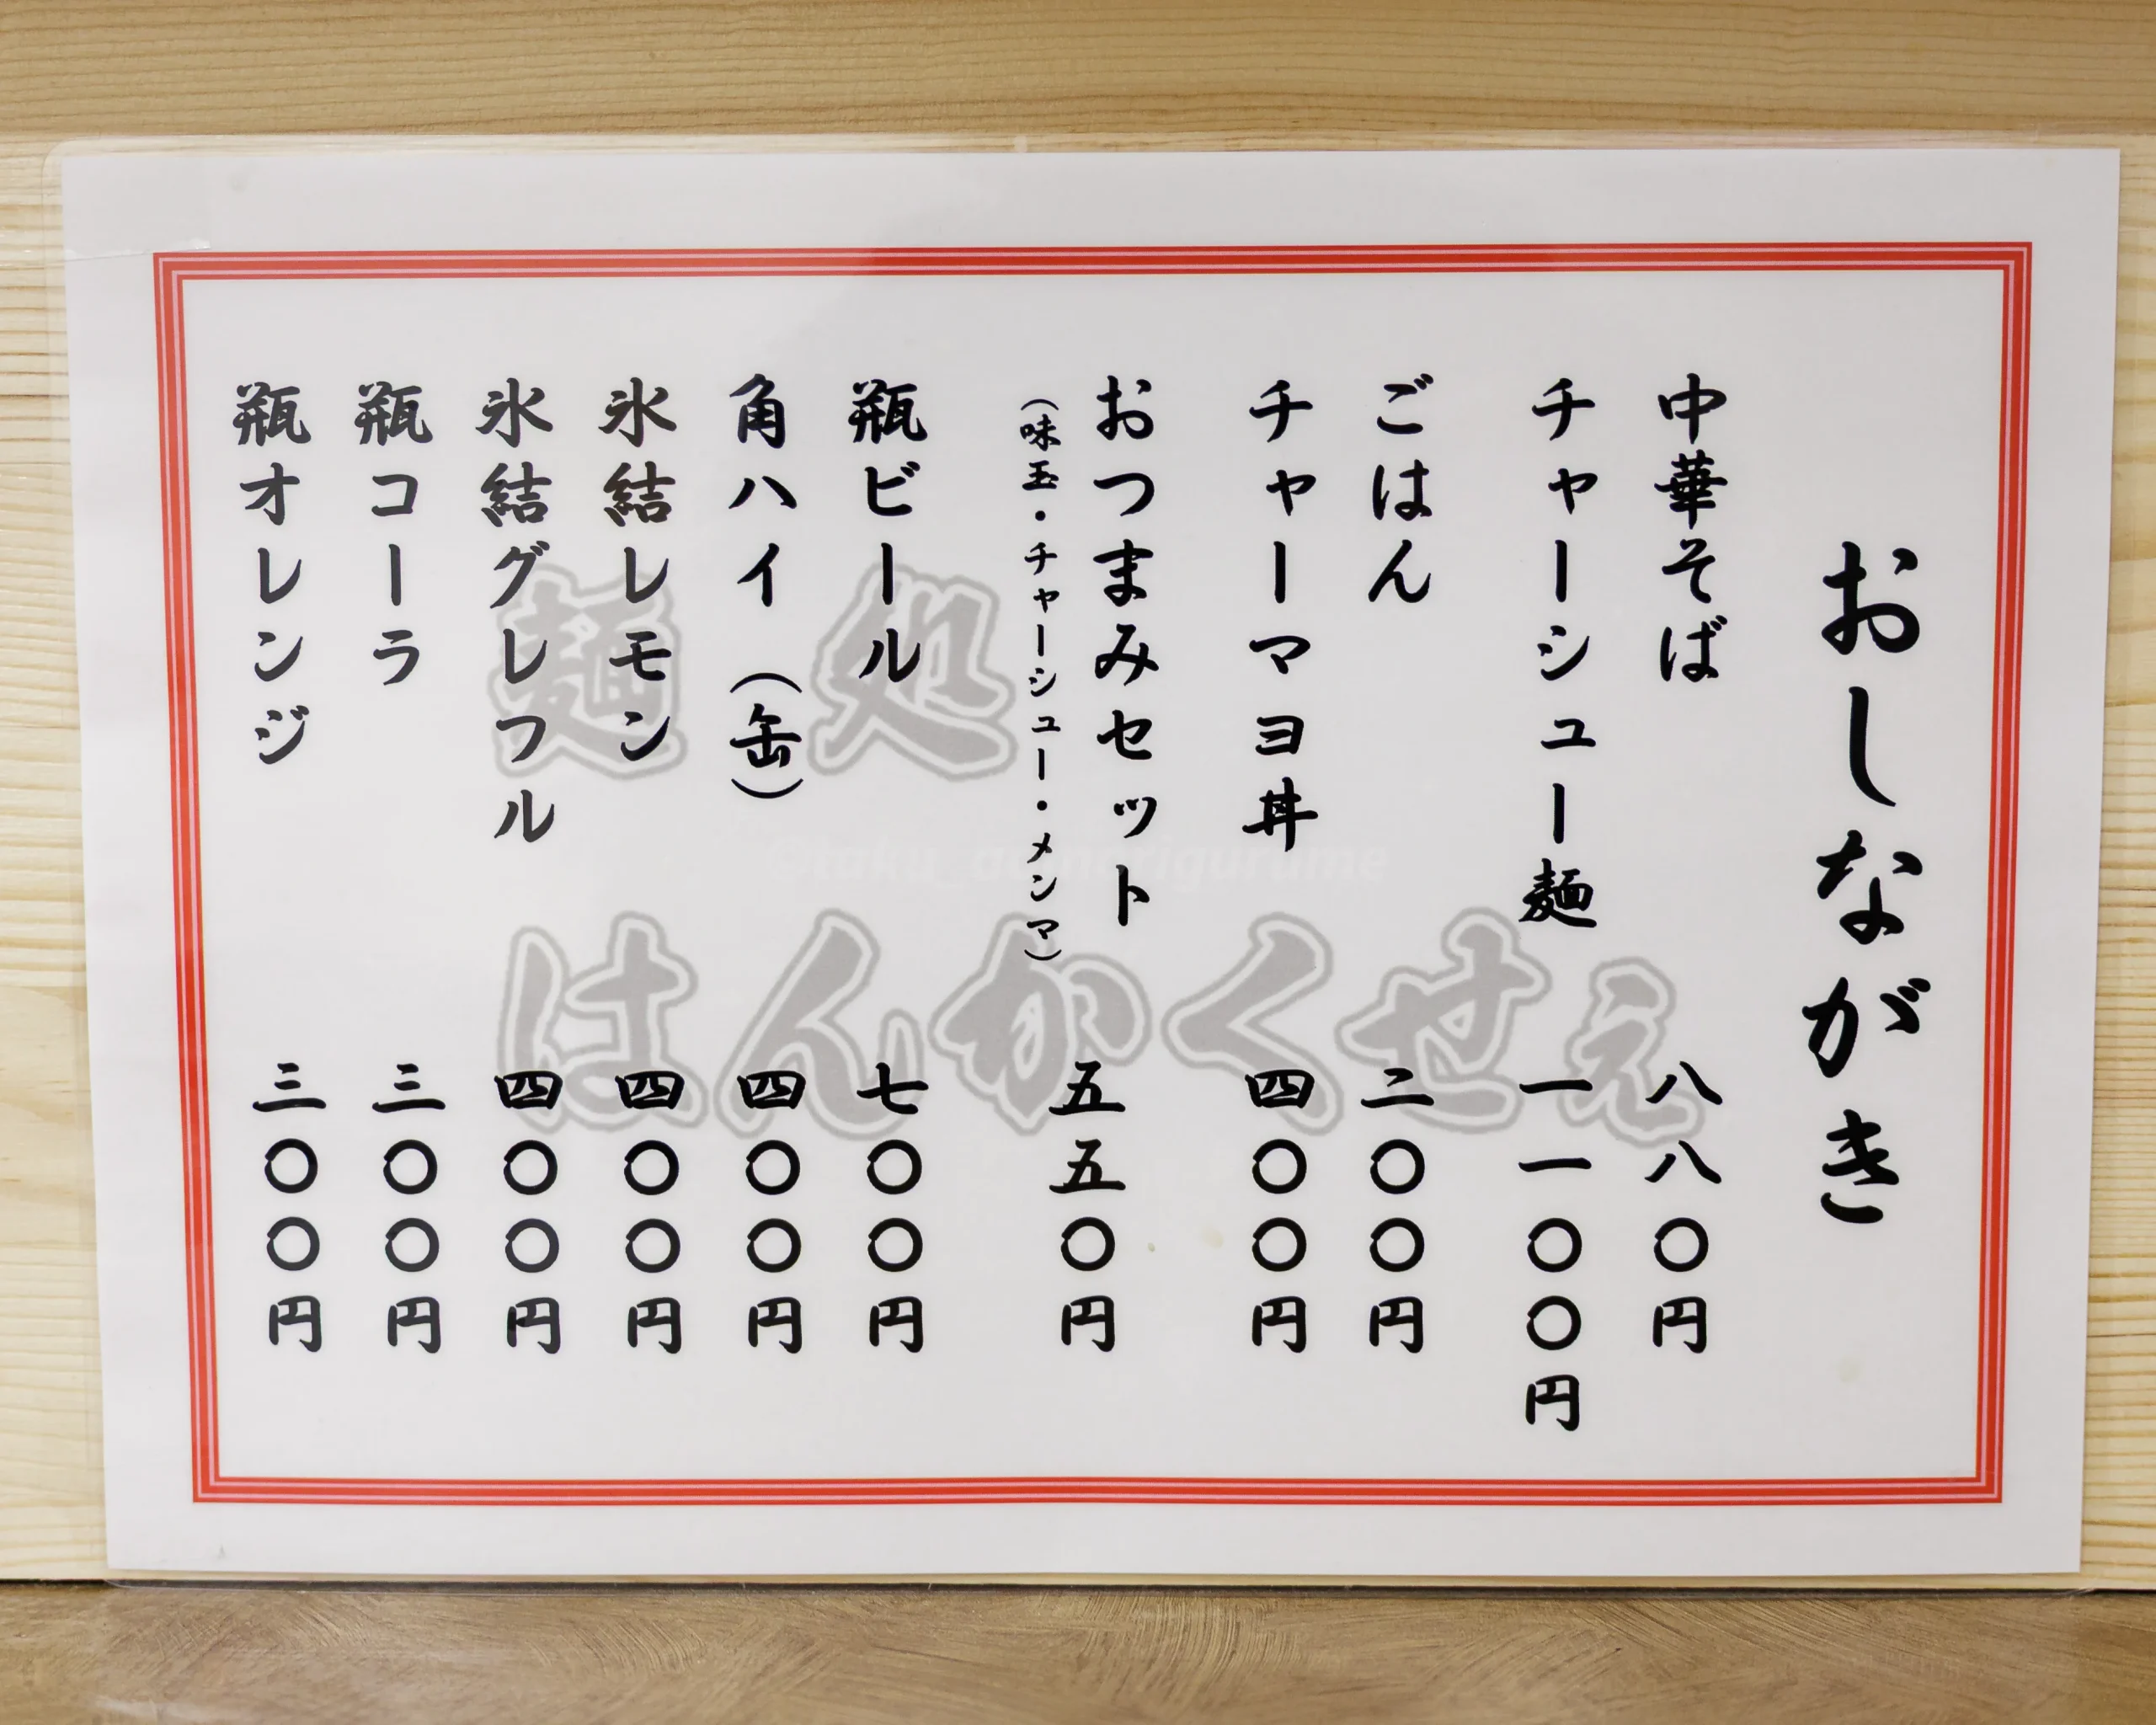 おしながき
中華そば 八八〇円
チャーシュー麺 一一〇〇円
ごはん 二〇〇円
チャーマヨ丼 四〇〇円
おつまみセット 五五〇円
（味玉・チャーシュー・メンマ）
瓶ビール 七〇〇円
角ハイ（缶） 四〇〇円
氷結レモン 四〇〇円
氷結グレフル 四〇〇円
瓶コーラ 三〇〇円
瓶オレンジ 三〇〇円
麺処
はんかくせぇ